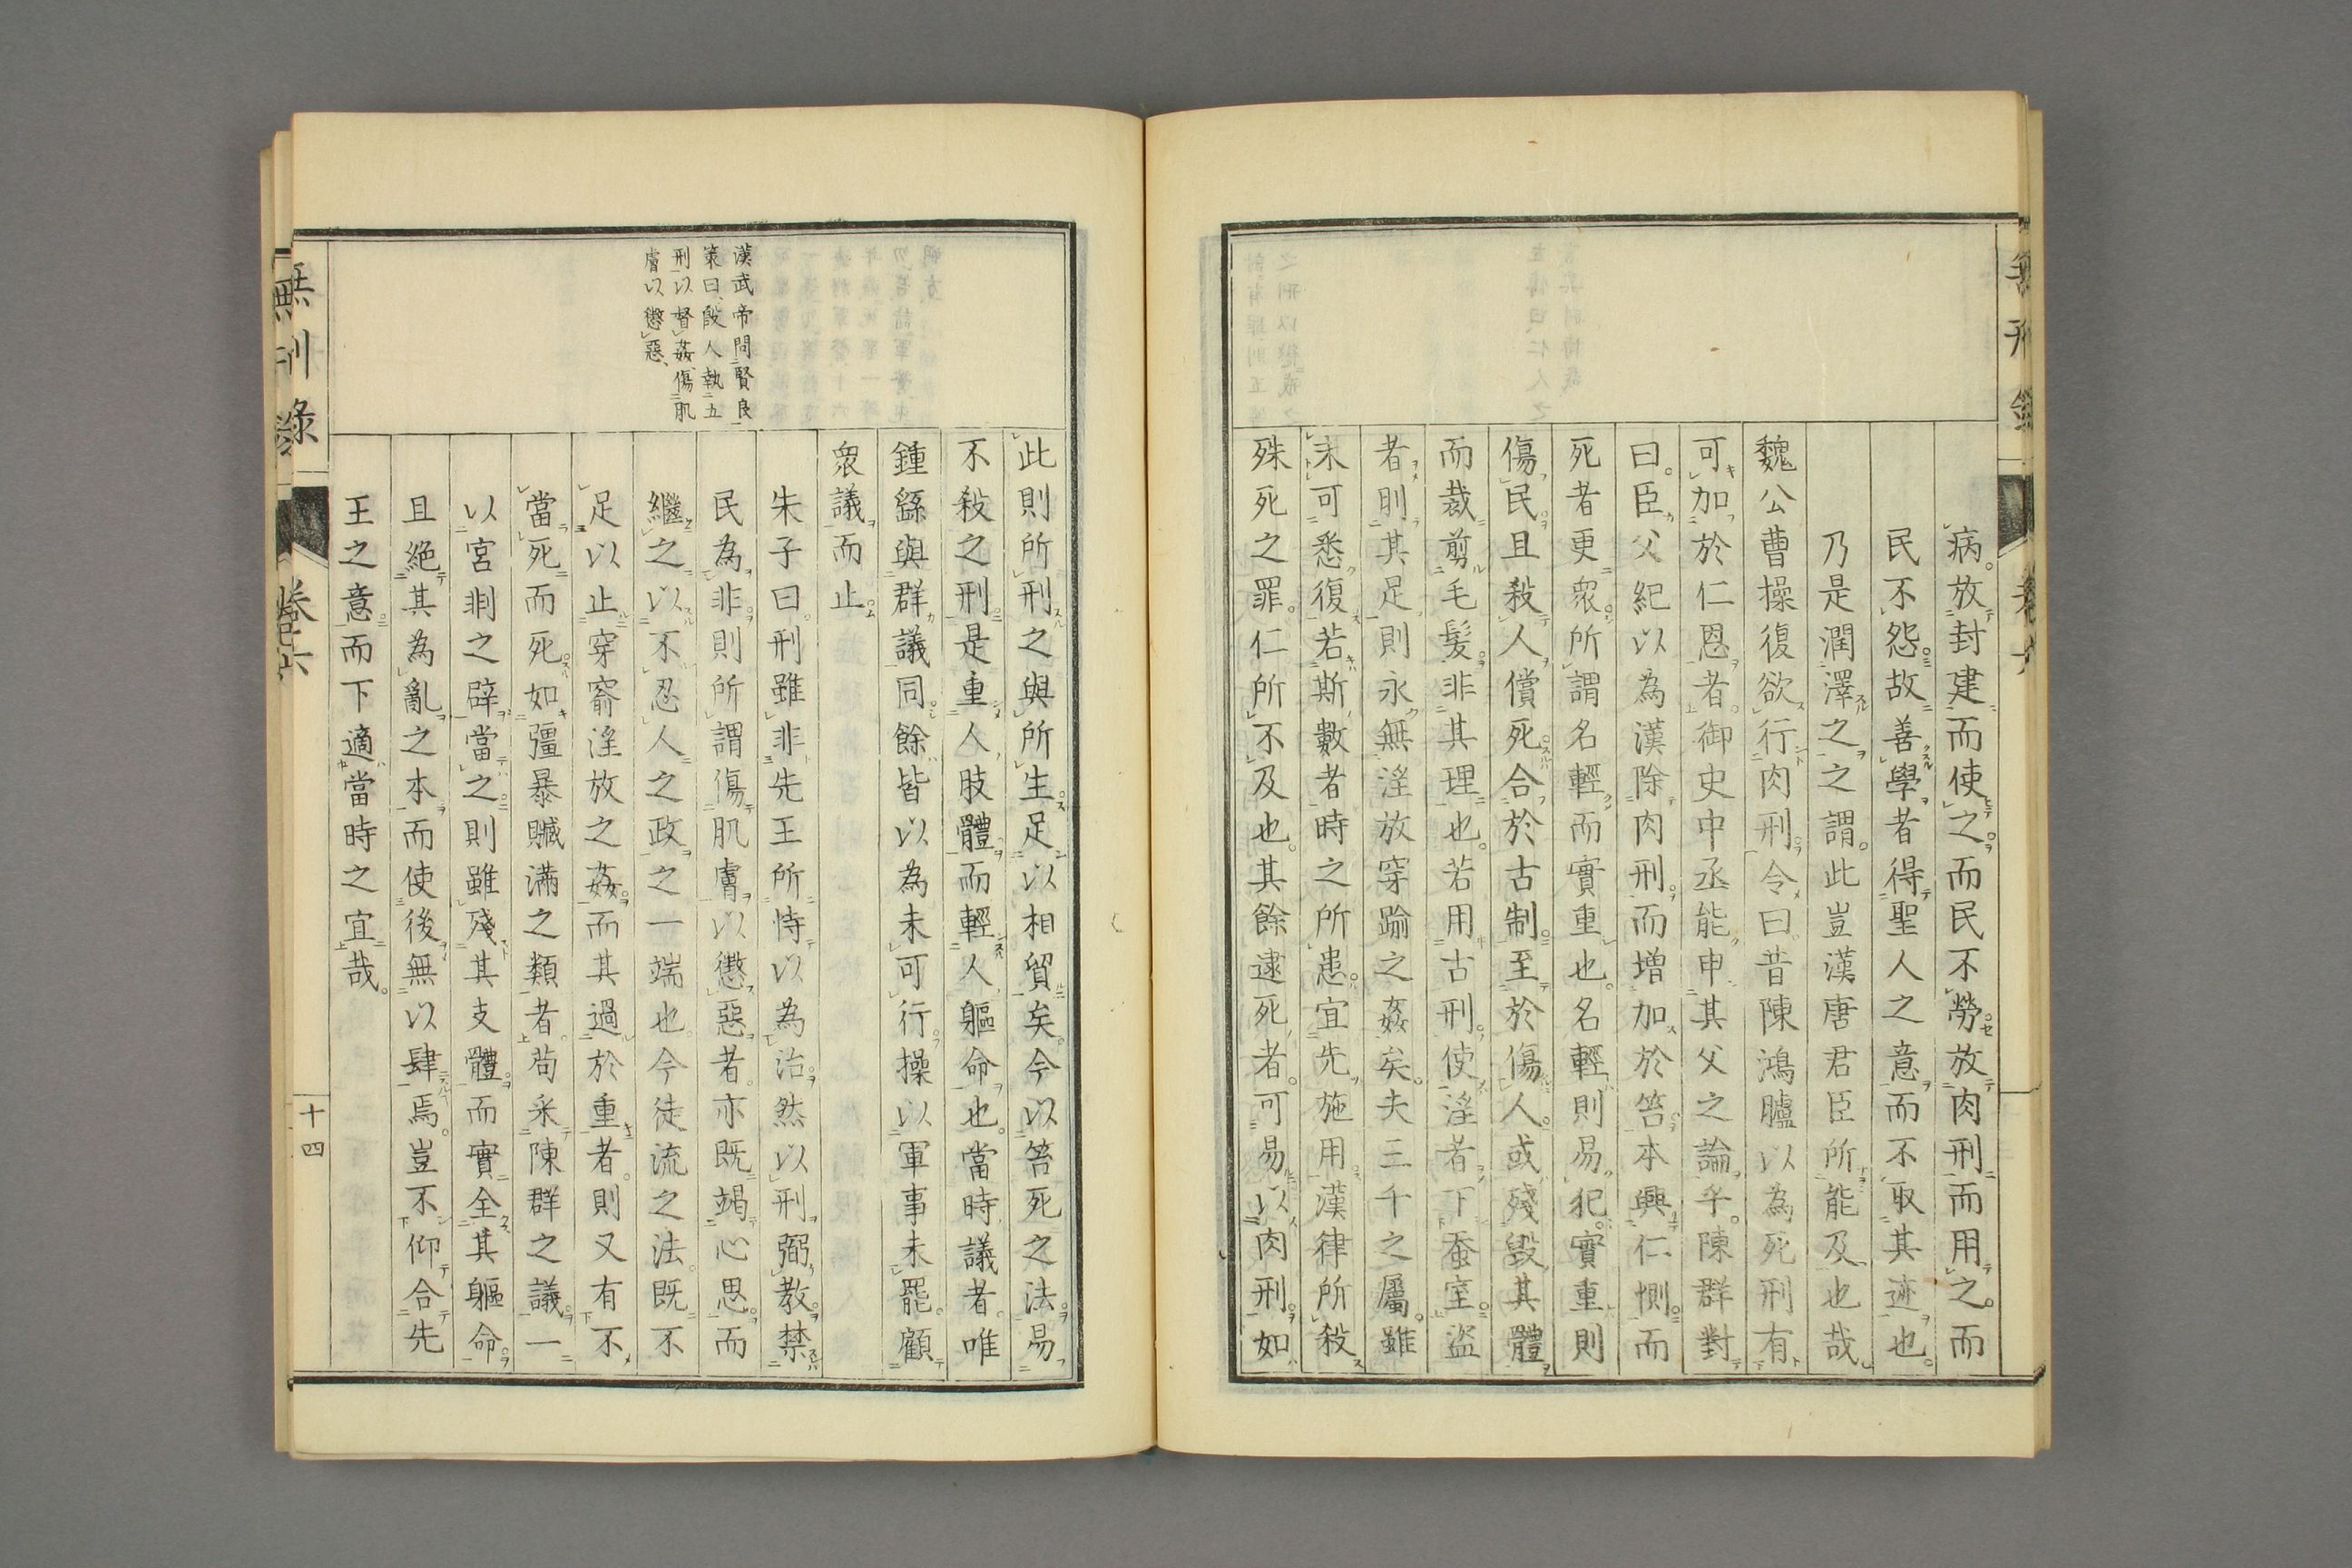 病放封建而使之而民不勞放肉刑而用之而
民不怨故善學者得聖人之意而不取其迹也
乃是潤澤之之謂此豈漢唐君臣所能及也哉
魏公曹操復欲行肉刑令曰昔陳鴻臚以為死刑有
可加於仁恩者御史中丞能申其父之論乎陳群對
曰臣父紀以為漢除肉刑而增加於笞本興仁惻而
死者更衆所謂名輕而實重也名輕則易犯實重則
傷民且殺人償死合於古制至於傷人或殘毀其體
而裁剪毛髮非其理也若用古刑使淫者下蚕室盜
者刖其足則永無淫放穿踰之姦矣夫三千之屬雖
未可悉復若斯數者時之所患宜先施用漢律所殺
殊死之罪仁所不及也其餘逮死者可易以肉刑如
漢武帝問賢良
策曰殷人執五
刑以督姦傷肌
膚以懲惡
此則所刑之與所生足以相貿矣今以笞死之法易
不殺之刑是重人肢體而輕人軀命也當時議者唯
鍾繇與群議同餘皆以為未可行操以軍事未罷顧
衆議而止
朱子曰刑雖非先王所恃以為治然以刑弼教禁
民為非則所謂傷肌膚以懲惡者亦既竭心思而
繼之以不忍人之政之一端也今徒流之法既不
足以止穿窬淫放之姦而其過於重者則又有不
當死而死如彊暴贓滿之類者苟采陳群之議一
以宮剕之辟當之則雖殘其支體而實全其軀命
且絕其為亂之本而使後無以肆焉豈不仰合先
王之意而下適當時之宜哉
無刑錄
卷六
十四